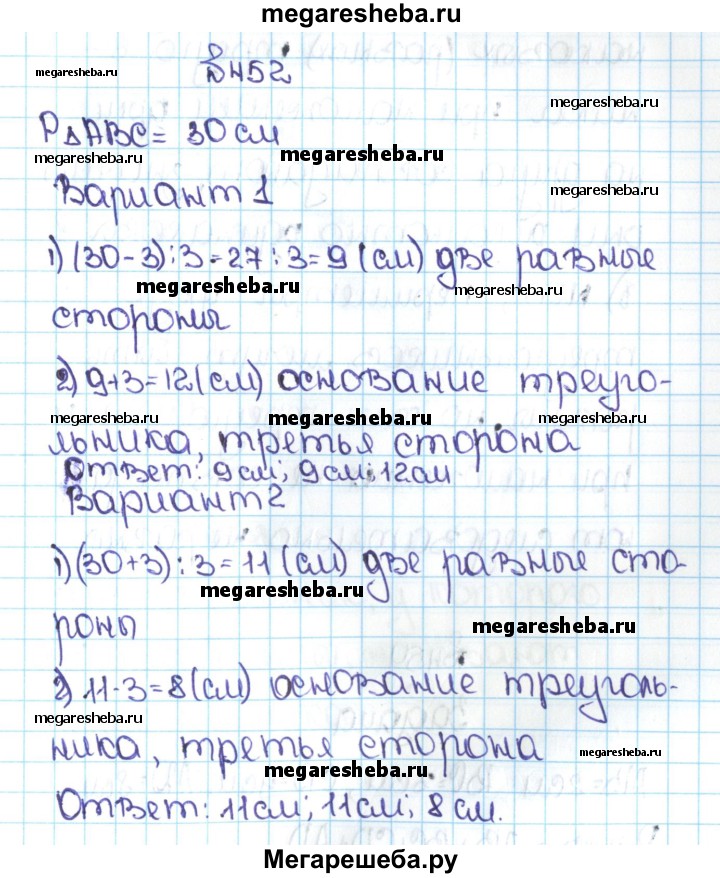 megaresheba.ru
№452
megaresheba.ru
megaresheba.ru
P△ABC = 30 см
megaresheba.ru
megaresheba.ru
Вариант 1
megaresheba.ru
1) (30-3):3=27:3=9 (см) две равные
megaresheba.ru
megaresheba.ru
стороны
2) 9+3=12(см) основание треуго-
megaresheba.ru
megaresheba.ru
megaresheba.ru
льника, третья сторона
Ответ: 9см; 9см; 12см
Вариант 2
1) (30+3):3=11 (см) две равные сто-
megaresheba.ru
роны
megaresheba.ru
2) 11-3=8(см) основание треуголь-
megaresheba.ru
ника, третья сторона
megaresheba.ru
megaresheba.ru
Ответ: 11см; 11см; 8см.
Мегарешеба.ру